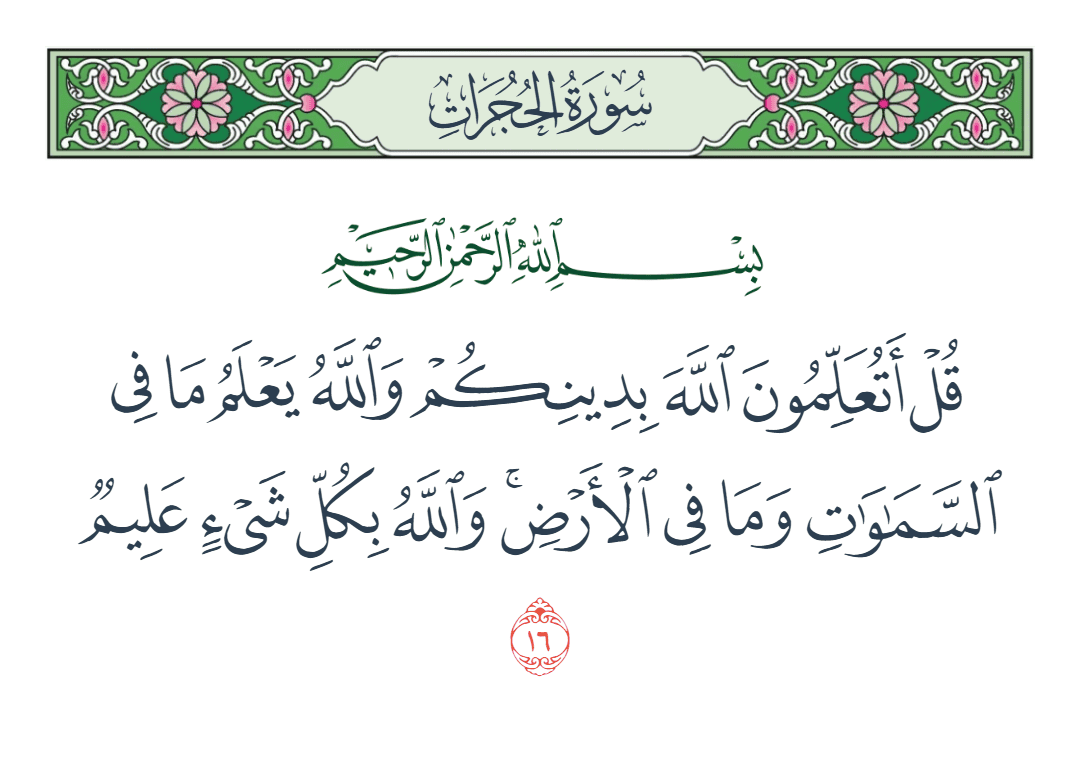 سُورَةُ الحُجُرَاتِ
بِسْمِ ٱللَّهِ ٱلرَّحْمَٰنِ ٱلرَّحِيمِ
قُلْ أَتُعَلِّمُونَ ٱللَّهَ بِدِينِكُمْ وَٱللَّهُ يَعْلَمُ مَا فِى
ٱلسَّمَـٰوَٰتِ وَمَا فِى ٱلْأَرْضِ ۚ وَٱللَّهُ بِكُلِّ شَىْءٍ عَلِيمٌ
١٦